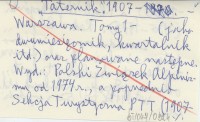 "Taternik", 1907-
Warszawa. Tom 1- (jako
dwumiesięcznik, kwartalnik
itd) oraz planowane następne.
Wyd: Polski Związek Alpiniz-
mu, od 1974 r., a poprzednio
Sekcja Turystyczna PTT (1907-